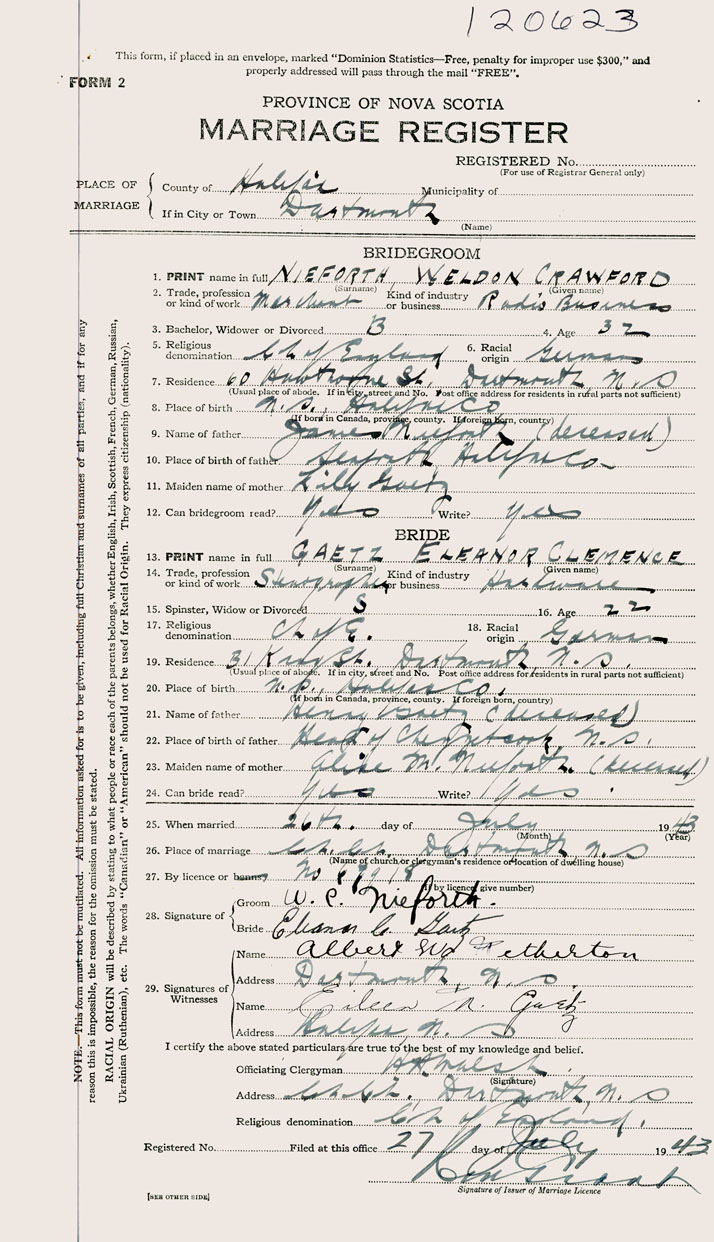 120623
This form, if placed in an envelope, marked "Dominion Statistics—Free, penalty for improper use $300," and
properly addressed will pass through the mail "FREE".
FORM 2
PROVINCE OF NOVA SCOTIA
MARRIAGE REGISTER
REGISTERED No.
(For use of Registrar General only)
PLACE OF MARRIAGE
County of Halifax Municipality of
If in City or Town Dartmouth
(Name)
BRIDEGROOM
1. PRINT name in full NIEFORTH, WELDON CRAWFORD
(Surname) (Given name)
2. Trade, profession or kind of work Merchant Kind of industry or business Radio Business
3. Bachelor, Widower or Divorced B 4. Age 32
5. Religious denomination Ch of England 6. Racial origin German
7. Residence 60 Hawthorne St. Dartmouth, N.S
(Usual place of abode. If in city, street and No. Post office address for residents in rural parts not sufficient)
8. Place of birth N.S., Halifax Co
(If born in Canada, province, county. If foreign born, country)
9. Name of father James Nieforth (deceased)
10. Place of birth of father Seaforth Halifax Co
11. Maiden name of mother Lilly Gaetz
12. Can bridegroom read? Yes Write? Yes
BRIDE
13. PRINT name in full GAETZ ELEANOR CLEMENCE
(Surname) (Given name)
14. Trade, profession or kind of work Stenographer Kind of industry or business Hardware
15. Spinster, Widow or Divorced S 16. Age 22
17. Religious denomination Ch of E. 18. Racial origin German
19. Residence 31 St. Dartmouth, N.S.
(Usual place of abode. If in city, street and No. Post office address for residents in rural parts not sufficient)
20. Place of birth N.S., Halifax Co.
(If born in Canada, province, county. If foreign born, country)
21. Name of father Henry Gaetz (deceased)
22. Place of birth of father Head of Chezzetcook, N.S.
23. Maiden name of mother Alice M. Nieforth (deceased)
24. Can bride read? Yes Write? Yes
25. When married 26th. day of July 1943
(Month) (Year)
26. Place of marriage Ch. Ch. Dartmouth, N S
(Name of church or clergyman's residence or location of dwelling house)
27. By licence or banns No
(If by licence, give number)
28. Signature of Groom W. C. Nieforth.
Bride Eleanor C. Gaetz
29. Signatures of Witnesses Name Albert Wetherton
Address Dartmouth, N.S.
Name Eileen M. Gaetz
Address Halifax N. S
I certify the above stated particulars are true to the best of my knowledge and belief.
Officiating Clergyman Walsh
(Signature)
Address Ch. Ch. Dartmouth, N S
Religious denomination Ch of England.
Registered No. Filed at this office 27 day of July 1943
Signature of Issuer of Marriage Licence
[SEE OTHER SIDE]
NOTE.—This form must not be mutilated. All information asked for is to be given, including full Christian and surnames of all parties, and if for any
reason this is impossible, the reason for the omission must be stated.
RACIAL ORIGIN will be described by stating to what people or race each of the parents belongs, whether English, Irish, Scottish, French, German, Russian,
Ukrainian (Ruthenian), etc. The words "Canadian" or "American" should not be used for Racial Origin. They express citizenship (nationality).